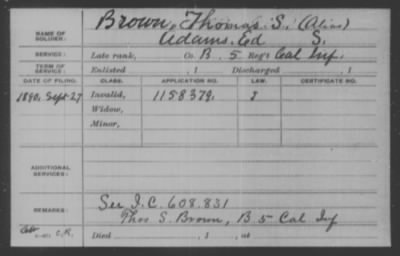 NAME OF SOLDIER: Brown, Thomas S. (Alias)
Adams, Ed S.
SERVICE: Late rank, Co. B. 5 Reg't Cal Inf.
TERM OF SERVICE: Enlisted , 1 Discharged , 1
DATE OF FILING. CLASS. APPLICATION NO. LAW. CERTIFICATE NO.
1890, Sept 27 Invalid, 1158379.
Widow,
Minor,
ADDITIONAL SERVICES:
REMARKS: See I.C. 608.831
Thos S. Brown, B 5 Cal Inf
C.R. Died , 1 , at